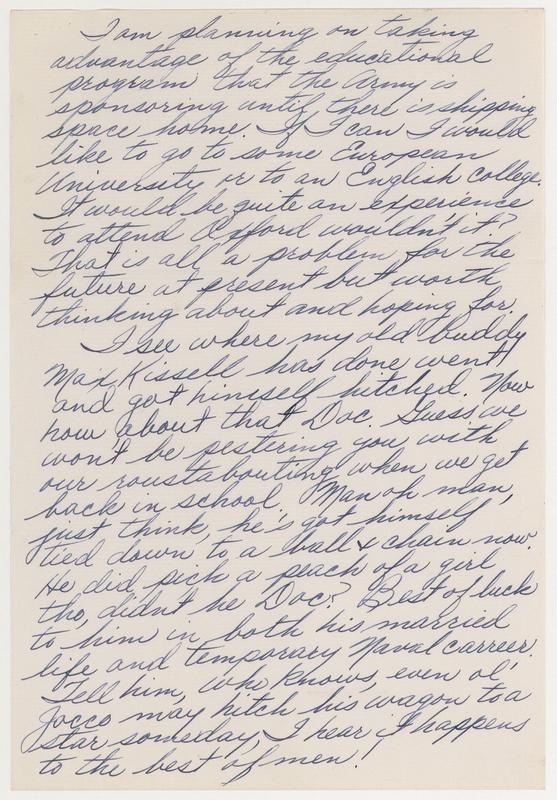 I am planning on taking
advantage of the educational
program that the Army is
sponsoring until there is shipping
space home. If I can I would
like to go to some European
University or to an English college.
It would be quite an experience
to attend Oxford wouldn't it?
That is all a problem for the
future at present but worth
thinking about and hoping for.
I see where my old buddy
Max Kissell has done went
and got himself hitched. Now
how about that Doc. Guess we
won't be pestering you with
our roustabouting when we get
back in school. Man oh man,
just think, he's got himself
tied down to a ball & chain now.
He did pick a peach of a girl
tho, didn't he Doc? Best of luck
to him in both his married
life and temporary Naval carreer.
Tell him, who knows, even ol'
Jocco may hitch his wagon to a
star someday, I hear it happens
to the best of men!